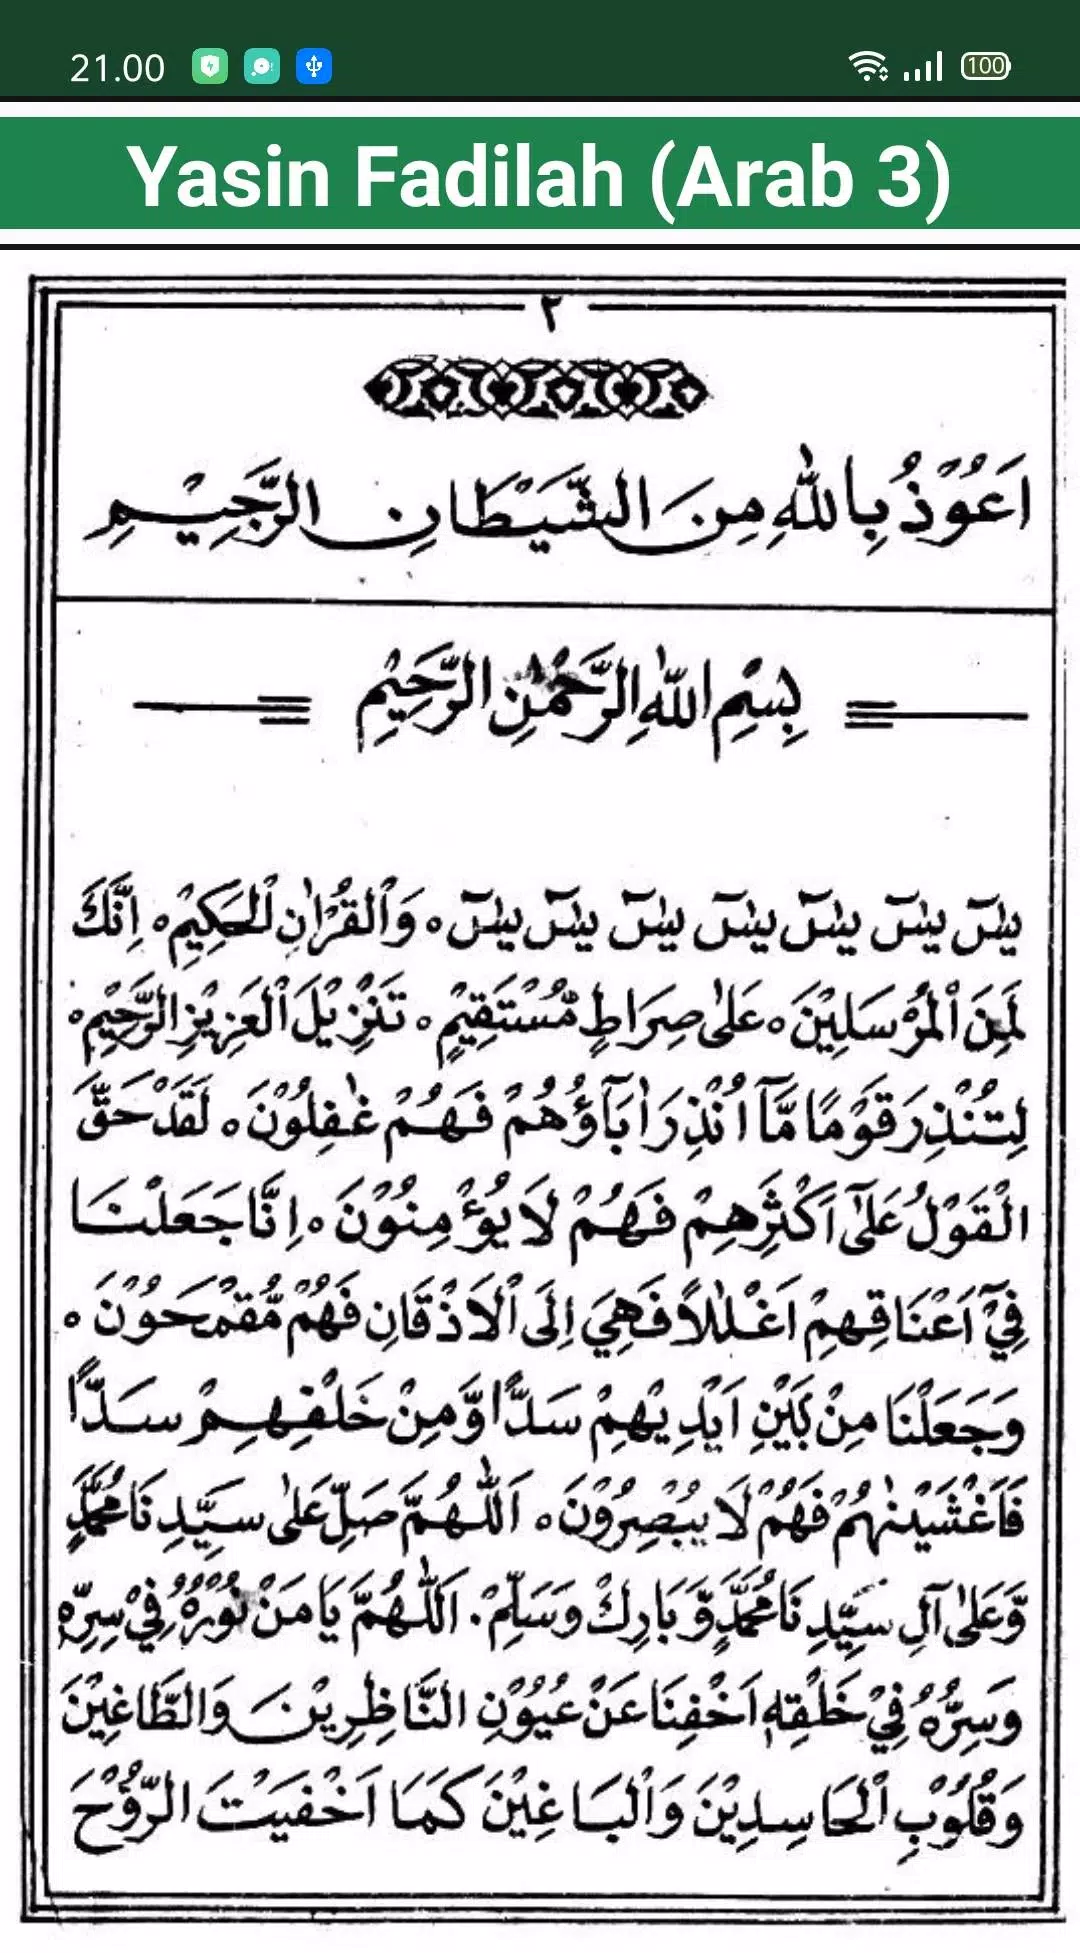 21.00
100
Yasin Fadilah (Arab 3)
٢
اَعُوْذُ بِاللّٰهِ مِنَ الشَّيْطَانِ الرَّجِيْمِ
بِسْمِ اللّٰهِ الرَّحْمٰنِ الرَّحِيْمِ
يٰسٓ يٰسٓ يٰسٓ يٰسٓ يٰسٓ يٰسٓ يٰسٓ ۰ وَالْقُرْاٰنِ الْحَكِيْمِ ۰ اِنَّكَ
لَمِنَ الْمُرْسَلِيْنَ ۰ عَلٰى صِرَاطٍ مُّسْتَقِيْمٍ ۰ تَنْزِيْلَ الْعَزِيْزِ الرَّحِيْمِ ۰
لِتُنْذِرَ قَوْمًا مَّآ اُنْذِرَ اٰبَآؤُهُمْ فَهُمْ غٰفِلُوْنَ ۰ لَقَدْ حَقَّ
الْقَوْلُ عَلٰٓى اَكْثَرِهِمْ فَهُمْ لَا يُؤْمِنُوْنَ ۰ اِنَّا جَعَلْنَا
فِيْٓ اَعْنَاقِهِمْ اَغْلٰلًا فَهِيَ اِلَى الْاَذْقَانِ فَهُمْ مُّقْمَحُوْنَ ۰
وَجَعَلْنَا مِنْ بَيْنِ اَيْدِيْهِمْ سَدًّا وَّمِنْ خَلْفِهِمْ سَدًّا
فَاَغْشَيْنٰهُمْ فَهُمْ لَا يُبْصِرُوْنَ ۰ اَللّٰهُمَّ صَلِّ عَلٰى سَيِّدِنَا مُحَمَّدٍ
وَّعَلٰى آلِ سَيِّدِنَا مُحَمَّدٍ وَّبَارِكْ وَسَلِّمْ. اَللّٰهُمَّ يَا مَنْ نُوْرُهُ فِيْ سِرِّهِ
وَسِرُّهُ فِيْ خَلْقِهِ اَخْفِنَا عَنْ عُيُوْنِ النَّاظِرِيْنَ وَالطَّاغِيْنَ
وَقُلُوْبِ الْحَاسِدِيْنَ وَالْبَاغِيْنَ كَمَا اَخْفَيْتَ الرُّوْحَ